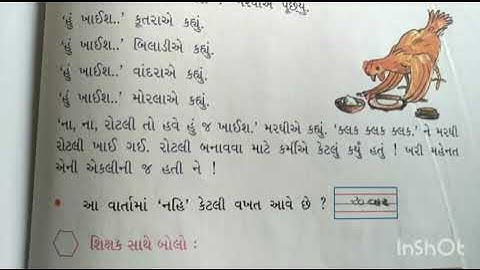 મરઘીએ પૂછ્યું.
'હું ખાઈશ..' કૂતરાએ કહ્યું.
'હું ખાઈશ..' બિલાડીએ કહ્યું.
'હું ખાઈશ..' વાંદરાએ કહ્યું.
'હું ખાઈશ..' મોરલાએ કહ્યું.
'ના, ના, રોટલી તો હવે હું જ ખાઈશ.' મરઘીએ કહ્યું. 'ક્લક ક્લક ક્લક.' ને મરઘી
રોટલી ખાઈ ગઈ. રોટલી બનાવવા માટે કર્મીએ કેટલું કર્યું હતું ! ખરી મહેનત
એની એકલીની જ હતી ને !
• આ વાર્તામાં 'નહિ' કેટલી વખત આવે છે ?
શિક્ષક સાથે બોલો :
InShOt